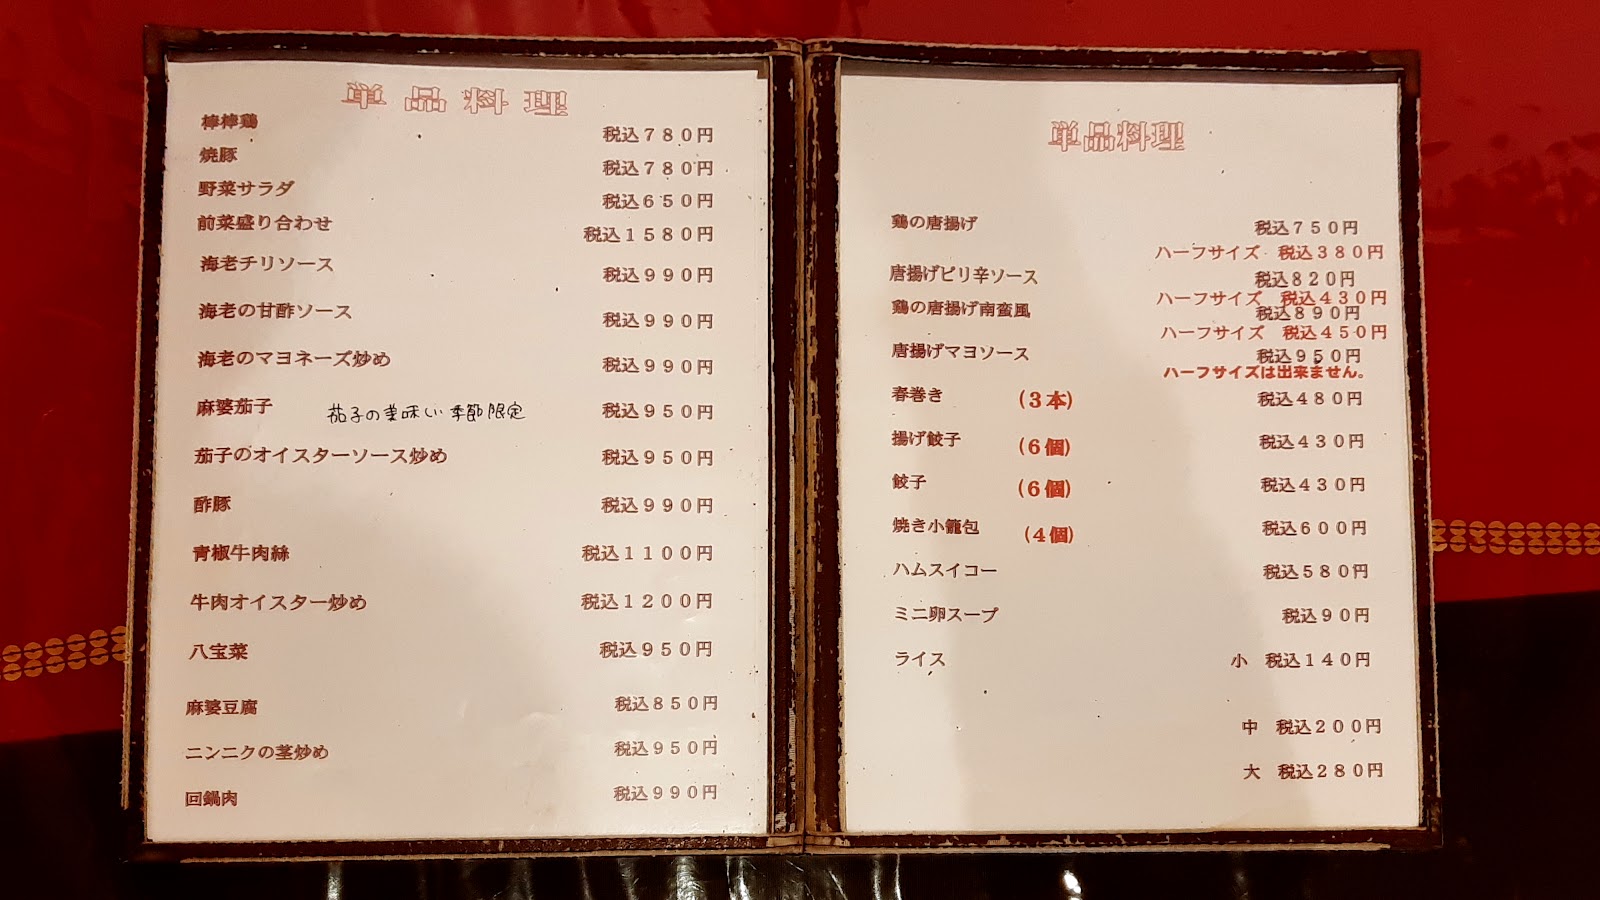 単品料理
棒棒鶏 税込780円
焼豚 税込780円
野菜サラダ 税込650円
前菜盛り合わせ 税込1580円
海老チリソース 税込990円
海老の甘酢ソース 税込990円
海老のマヨネーズ炒め 税込990円
麻婆茄子 茄子の美味しい季節限定 税込950円
茄子のオイスターソース炒め 税込950円
酢豚 税込990円
青椒牛肉絲 税込1100円
牛肉オイスター炒め 税込1200円
八宝菜 税込950円
麻婆豆腐 税込850円
ニンニクの茎炒め 税込950円
回鍋肉 税込990円
単品料理
鶏の唐揚げ 税込750円
ハーフサイズ 税込380円
唐揚げピリ辛ソース 税込820円
ハーフサイズ 税込430円
鶏の唐揚げ南蛮風 税込890円
ハーフサイズ 税込450円
唐揚げマヨソース 税込950円
ハーフサイズは出来ません。
春巻き (3本) 税込480円
揚げ餃子 (6個) 税込430円
餃子 (6個) 税込430円
焼き小籠包 (4個) 税込600円
ハムスイコー 税込580円
ミニ卵スープ 税込90円
ライス 小 税込140円
中 税込200円
大 税込280円